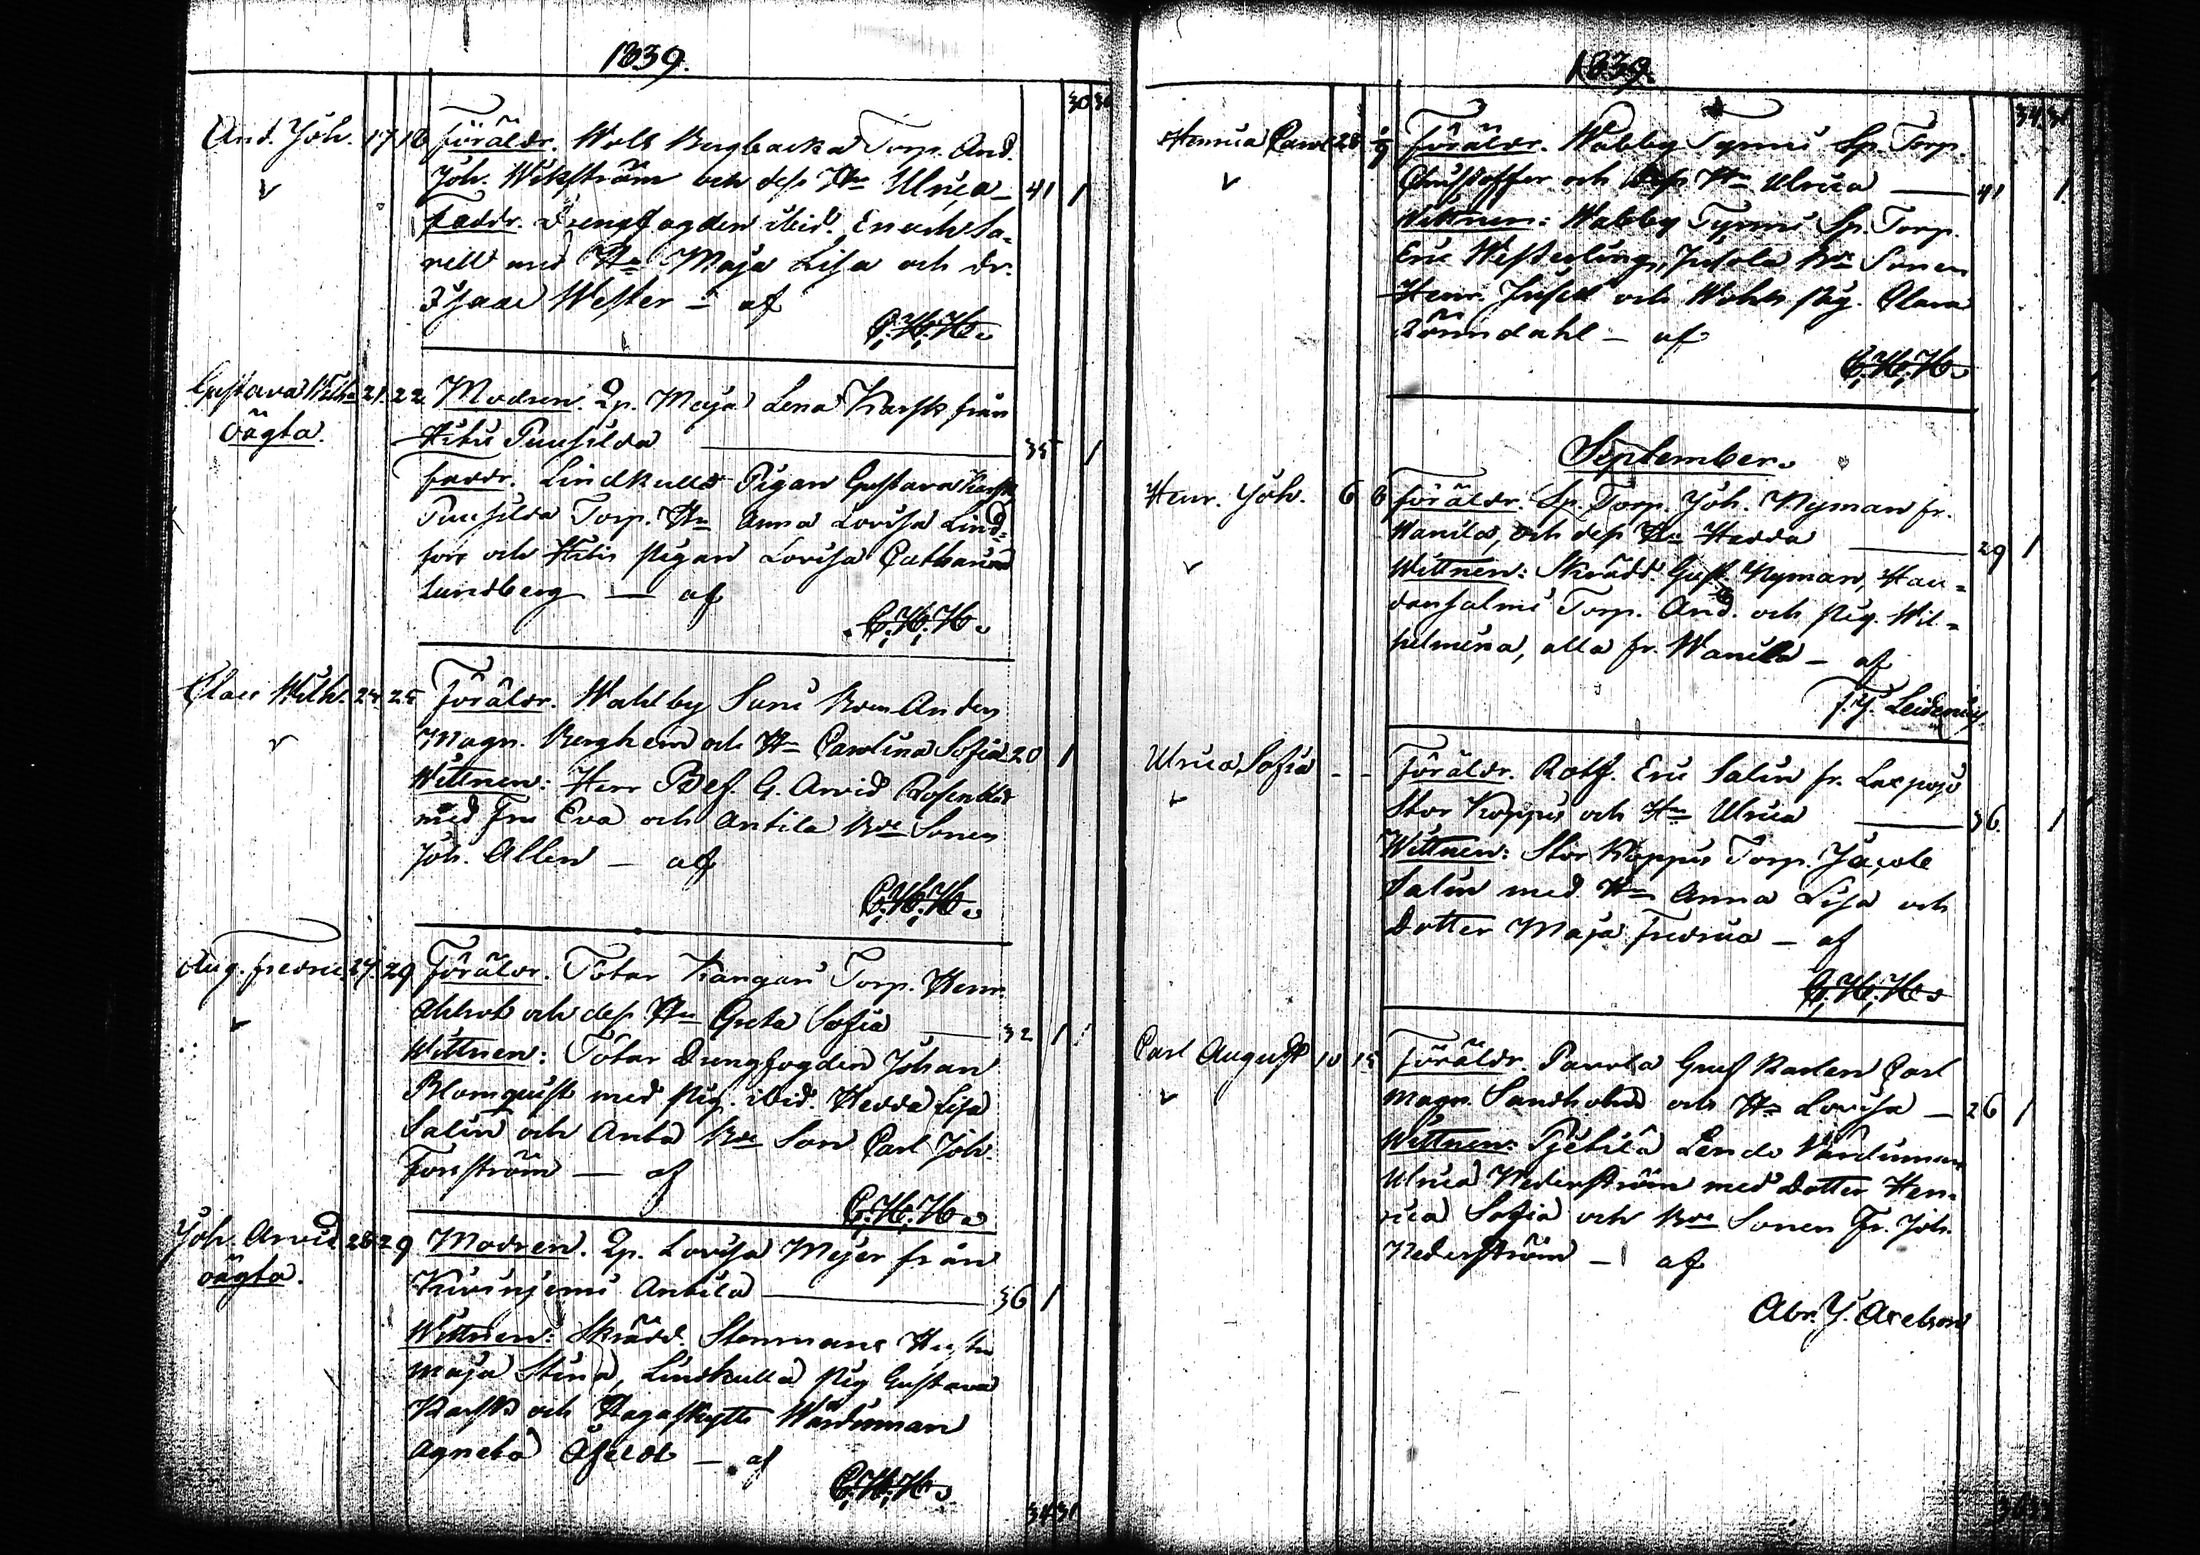 1839.
30 30
And. Joh. 17 18 Föräldr. Wels Bergbacka Torp. And.
Joh. Wikström och dess Hu Ulrica 41 1
Faddr. Drengfogden ibid. Enoch Sa-
rell med Hu Maja Lisa och dr.
Isaac Wester – af
C.H.H.
Gustava Wilh. 21. 22. Modren. Qp. Maja Lena Karsk från
oägta. Hitis Puusilda 35 1
Faddr. Lindkulla Pigan Gustava Karsk
Puusilda Torp. Hu Anna Lovisa Lind-
fors och Hitis pigan Lovisa Catharina
Lundberg – af
C.H.H.
Claes Wilh. 24. 25 Föräldr. Wahlby Suni Bon Anders
Magn. Berghem och Hu Carolina Sofia 20 1
Wittnen: Herr Bef. G. Arvid Rosenblad
med Fru Eva och Antila Bde Sonen
Joh. Allen – af
C.H.H.
Aug. Fredric. 27. 29 Föräldr. Tötar Kangas Torp. Henr.
och dess Hu Greta Sofia 32 1
Wittnen: Tötar Drengfogden Johan
Blomquist med pig. ibid. Hedda Lisa
Salin och Anta Bde Son Carl Joh.
Forsström – af
C.H.H.
Joh. Arvid 28 29 Modren. Qp. Lovisa Meijer från
oägta. Kuvinjemi Antila 36 1
Wittnen: Skrädd. Stenmans Hustru
Maja Stina, Lindkulla pig Gustava
Karsk och Wärdinnan
Agneta – af
C.H.H.
34 31
1839.
34 31
Henrica Carol. 28 1/9 Föräldr. Wabby Tynni Sp. Torp.
Christoffer och dess Hu Ulrica 41 1
Wittnen: Wabby Tynni Sp. Torp.
Eric Westerling, Jusola Bde Sonen
Henr. och pig. Clara
Rönndahl – af
C.H.H.
September.
Henr. Joh. 6 6 Föräldr. Sp. Torp. Joh. Nyman fr.
Wanila, och dess Hu Hedda 29 1
Wittnen: Skrädd. Gust. Nyman, Hau-
densalmi Torp. And. och pig. Wil-
helmina, alla fr. Wanila – af
F.J. Leidenius
Ulrica Sofia - - Föräldr. Rotf. Eric Salin fr. Laxpojo
Stor Koppus och Hu Ulrica 36 1
Wittnen: Stor Koppus Torp. Jacob
Salin med Hu Anna Lisa och
Dotter Maja Fredrica – af
C.H.H.
Carl August 10 15 Föräldr. Pavola Karlen Carl
Magn. Sandholm och Hu Lovisa – 26 1
Wittnen: Pjetilä Wärdinnan
Ulrica Nederström med Dotter Hen-
rica Sofia och Bde Sonen Fr. Joh.
Nederström – af
Abr. J. Axelson